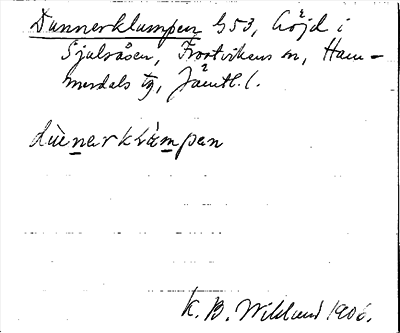 Dunnerklumpen G53, höjd i
Sjulsåsen, Frostvikens sn, Ham-
merdals tg, Jämtl. l.
dùnarklùmpen
K. B. Wiklund 1906.